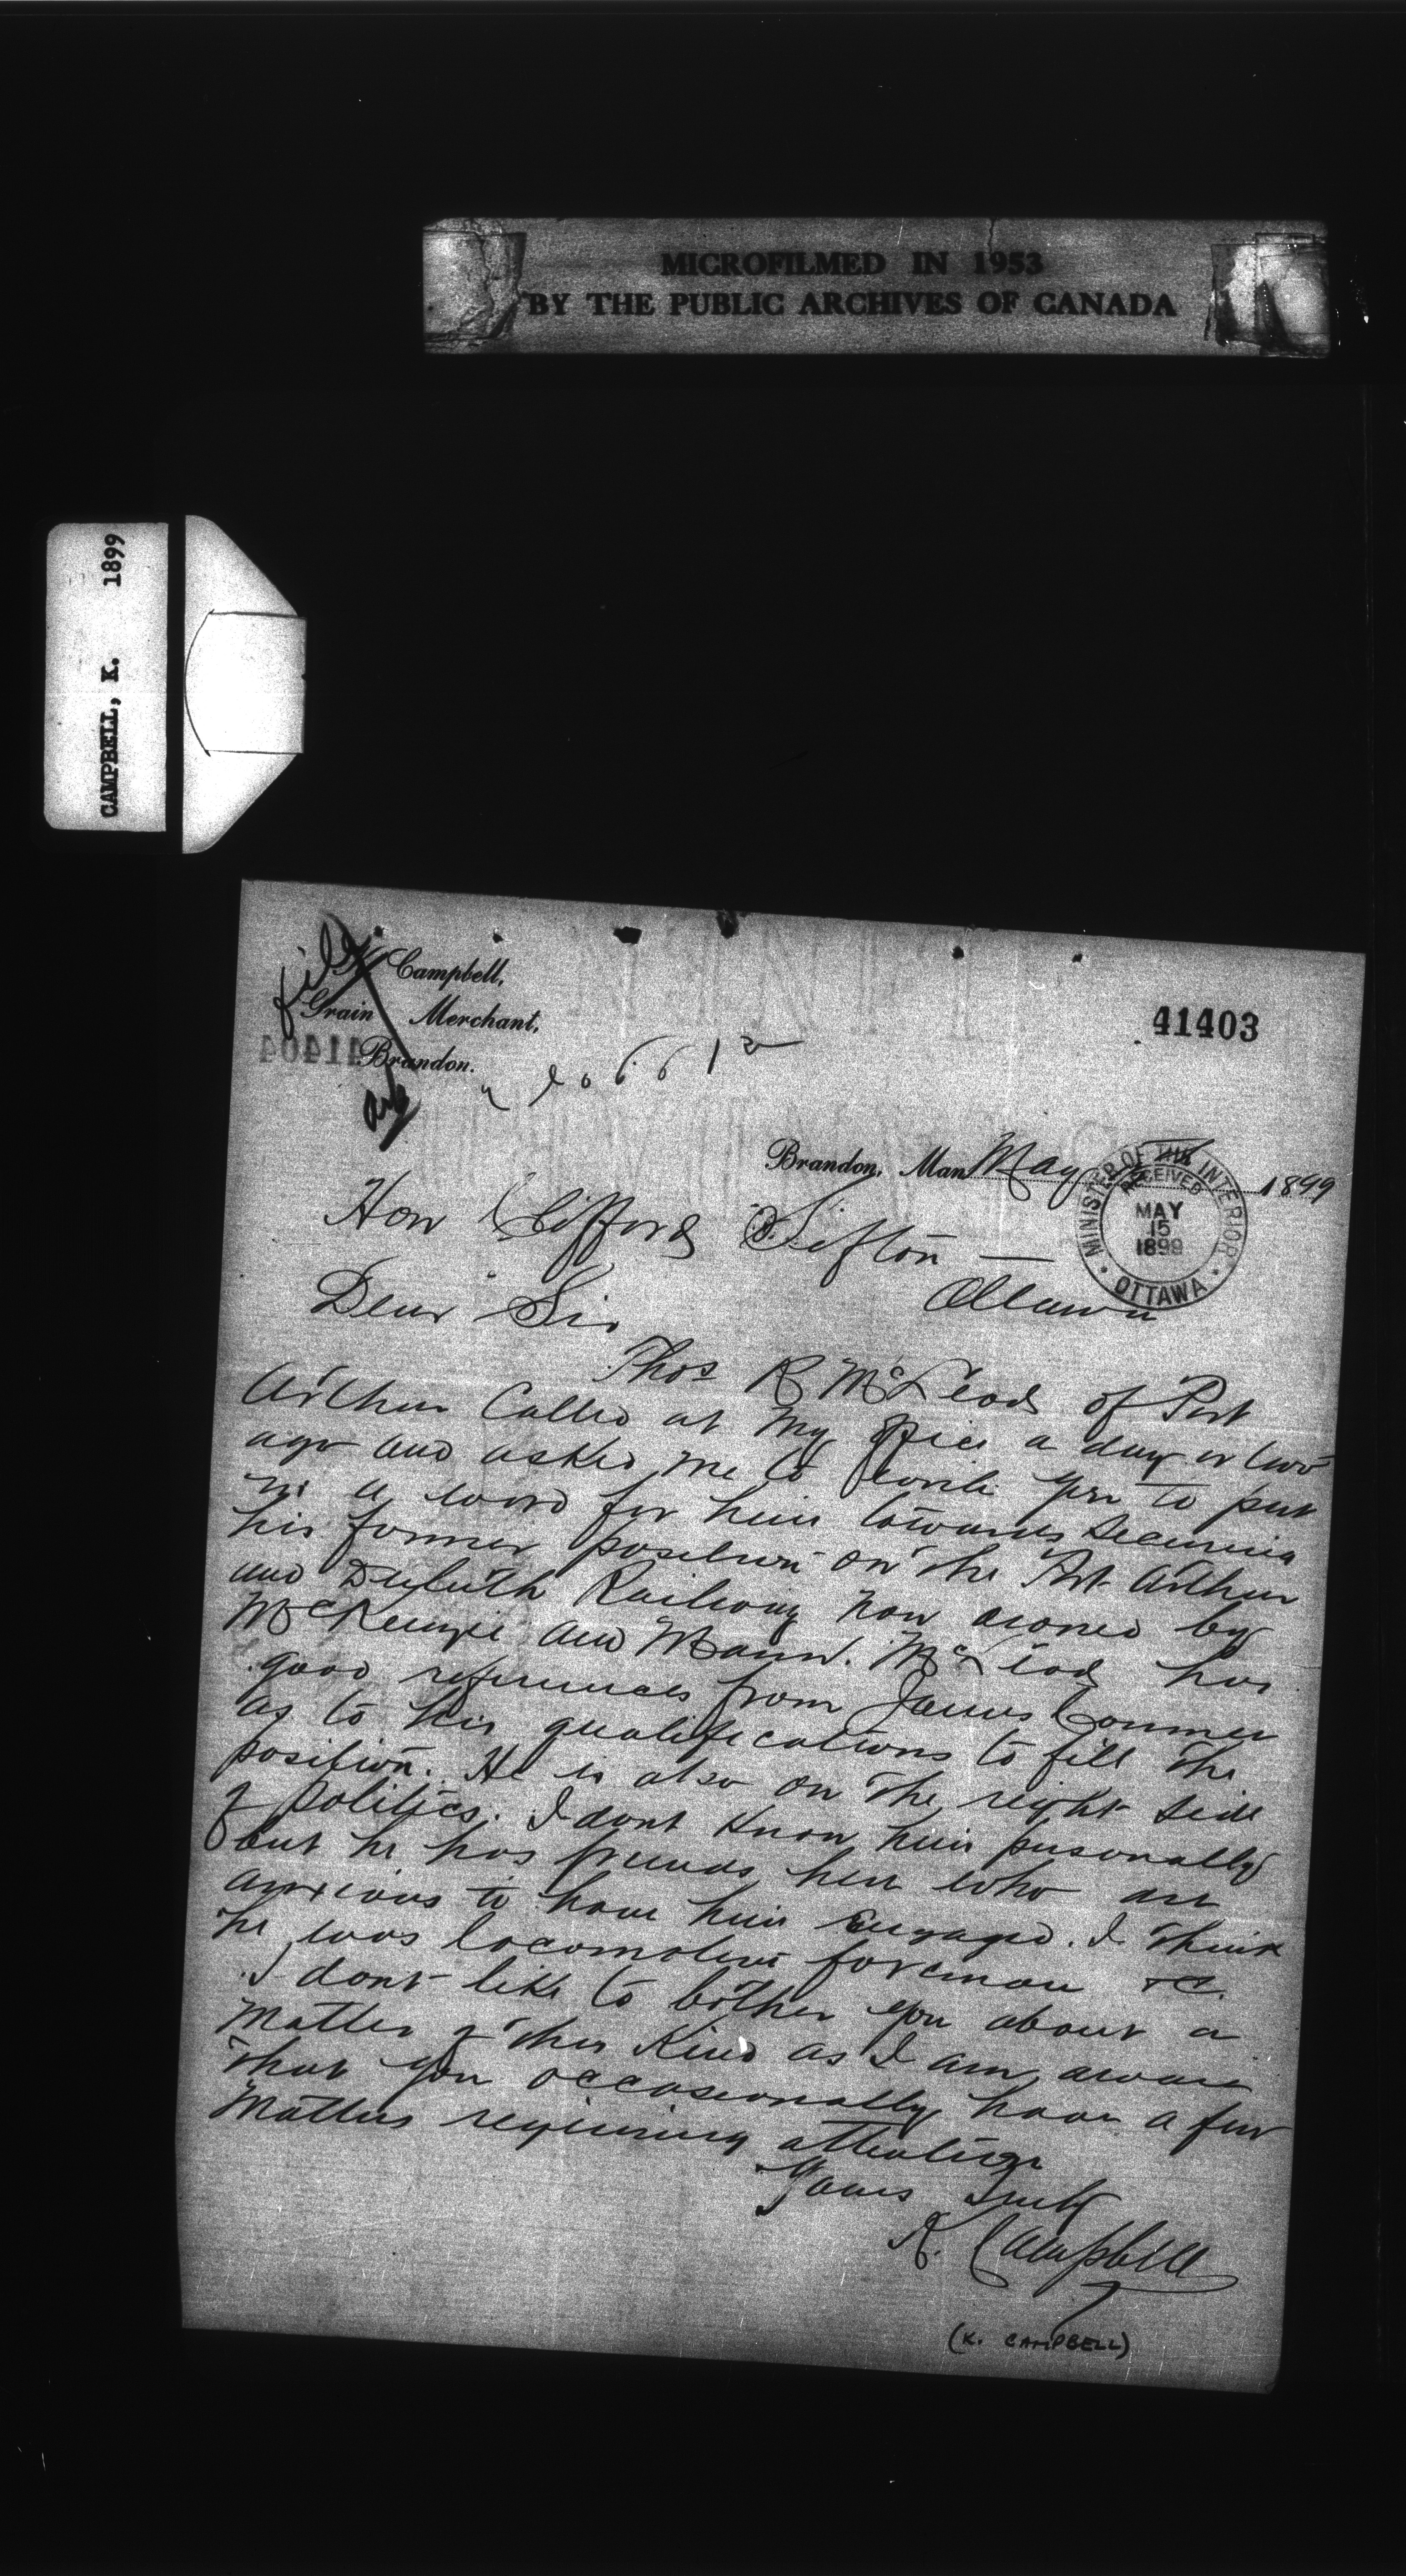 MICROFILMED IN 1953
BY THE PUBLIC ARCHIVES OF CANADA
CAMPBELL, K. 1899
file
K. Campbell,
Grain Merchant,
Brandon.
41403
41404
Brandon, Man May 1899
MINISTER OF THE INTERIOR
RECEIVED
MAY
15
1899
OTTAWA
Hon Clifford Sifton
Ottawa
Dear Sir
Thos R McLeod of Port
Arthur Called at my office a day or two
ago and asked me to write you to put
in a word for him towards securing
his former position on the Port Arthur
and Duluth Railway now owned by
McKenzie and Mann. McLeod has
good references from James Conmee
as to his qualifications to fill the
position. He is also on the right side
of politics. I dont know him personally
but he has friends here who are
anxious to have him engaged. I think
he was locomotive foreman &c.
I dont like to bother you about a
matter of this kind as I am aware
that you occasionally have a few
matters requiring attention
Yours Truly
K. Campbell
(K. CAMPBELL)